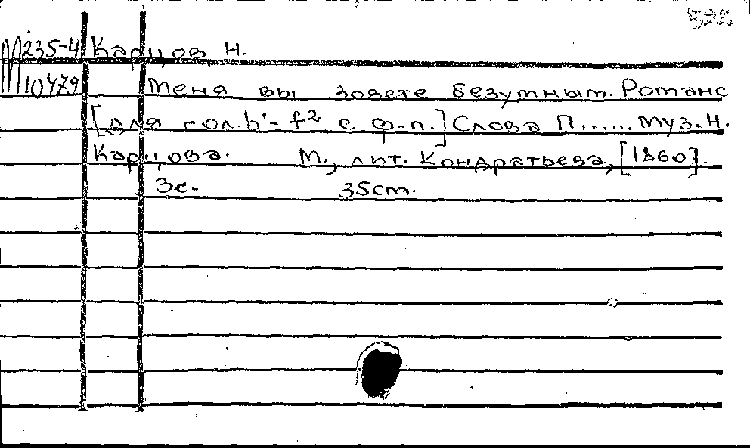 М235-4 Карцов Н.
10479 Меня вы зовете безумным. Романс
[для гол. h'-f² с ф-п.] Слова П...... Муз. Н.
Карцова. М., лит. Кондратьева, [1860].
3с. 35cm.